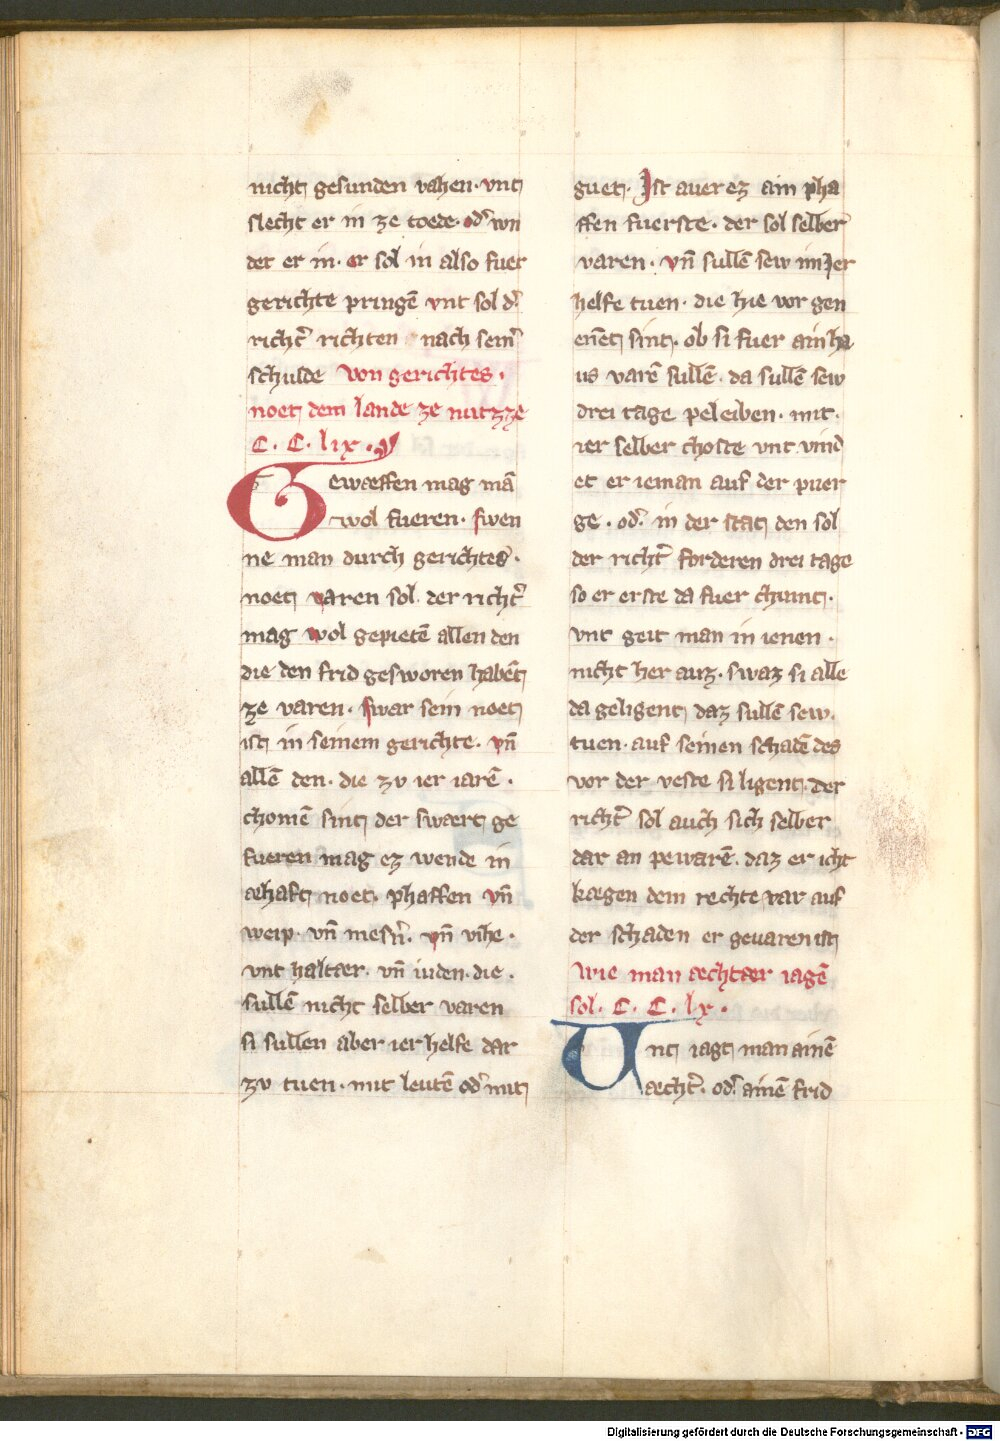 nicht gesunden vahen· vnt
slecht er in ze toede· od͛ wn
det er in· er sol in also fuer
gerichte pringē vnt sol d͛
richt͛ richten nach sem͛
schulde Von gerichtes·
noet dem lande ze nutzze
C· C· lix·
Gewæffen mag mā
wol fueren· swen
ne man durch gerichtes·
noet varen sol· der richt͛
mag wol gepietē allen den
die den frid gesworen habēt
ze varen· swar sein noet
ist in seinem gerichte· vn̄
allē den· die zv ier iarē·
chomē sint der swært ge
fueren mag ez wende in
æhaft noet· phaffen vn̄
weip· vn̄ mesn͛· vn̄ vihe·
vnt haltær· vn̄ iuden· die·
sullē nicht selber varen
si sullen aber ier helfe dar
zv tuen· mit leutē od͛ mit
guet· Ist auer ez ain pha
ffen fuerste· der sol selber
varen· vn̄ sullē sew im ier
helfe tuen· die hie vor gen
enēt sint· ob si fuer ain ha
us varē sullē· da sullē sew
drei tage peleiben· mit·
ier selber choste vnt vind
et er ieman auf der puer
ge· od͛ in der stat den sol
der richt͛ forderen drei tage
so er erste da fuer chumt·
vnt geit man in ienen·
nicht her auz· swaz si alle
da geligent daz sullē sew·
tuen· auf seinen schadē des
vor der veste si ligent· der
richt͛ sol auch sich selber
dar an pewarē· daz er icht
kægen dem rechte var auf
der schaden er geuaren ist
Wie man æchtær iagē
sol· C· C· lx·
Vnt iagt man ainē
æcht͛· od͛ ainē frid
Digitalisierung gefördert durch die Deutsche Forschungsgemeinschaft - DFG